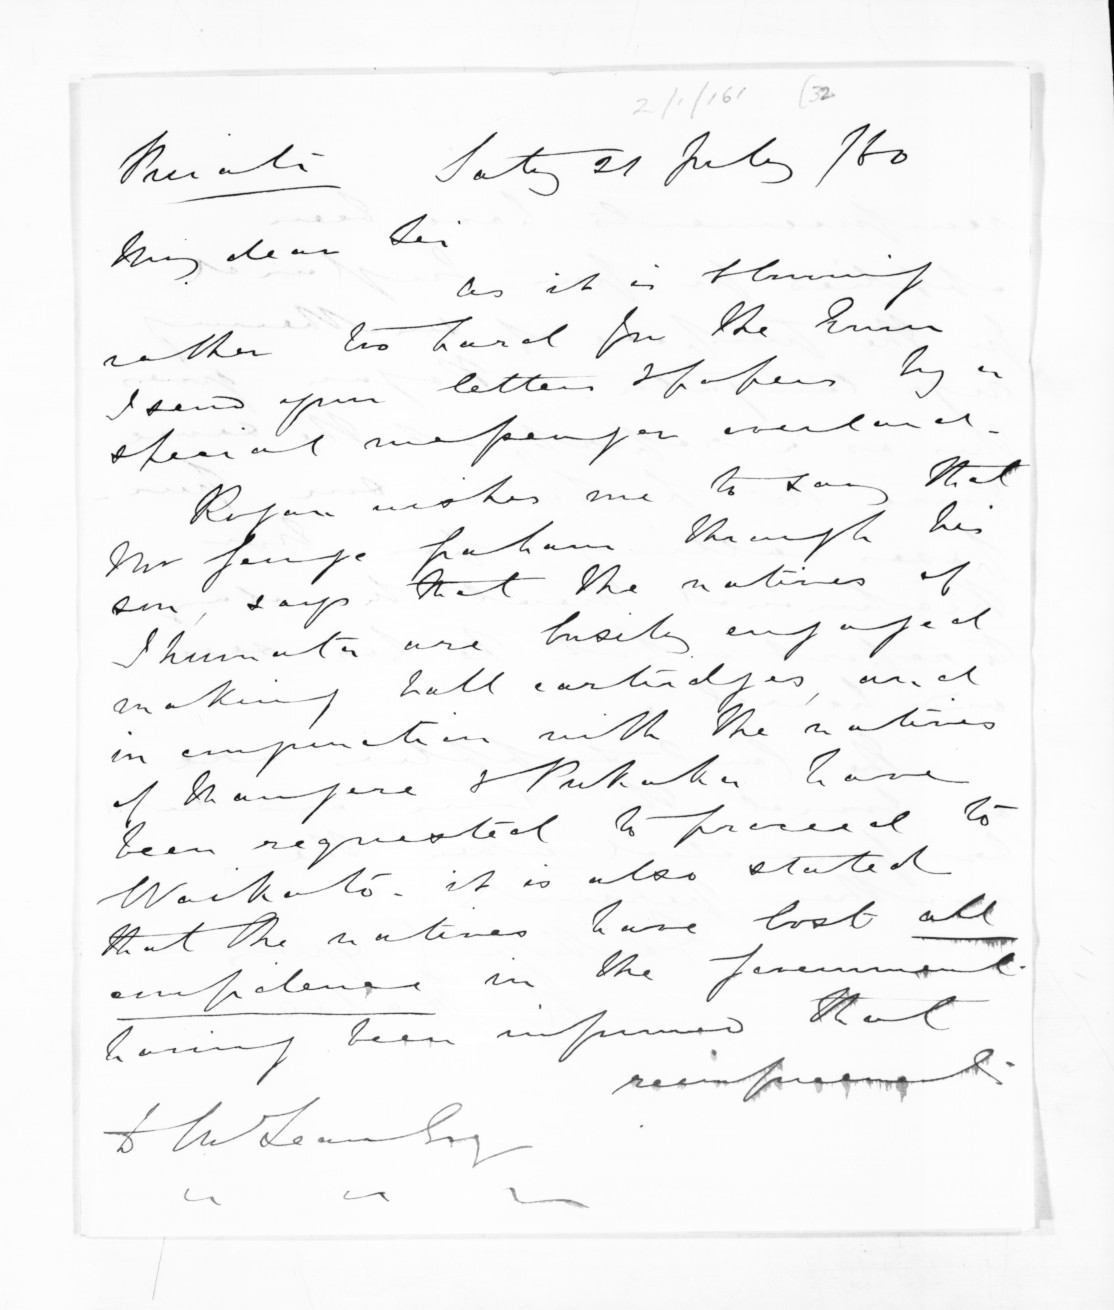 2/1/161 (32
Private Saty 21 July /60
My dear Sir
as it is blowing
rather too hard for the Emu
I send your letters & papers by a
special messenger overland.
Rogan wishes me to say that
Mr George Graham through his
son, says that the natives of
Ihumata are busily engaged
making ball cartridges, and
in conjunction with the natives
of Mangere & Pukaka have
been requested to proceed to
Waikato. it is also stated
that the natives have lost all
confidence in the Government.
having been informed that
reinforcements
D McLean Esq